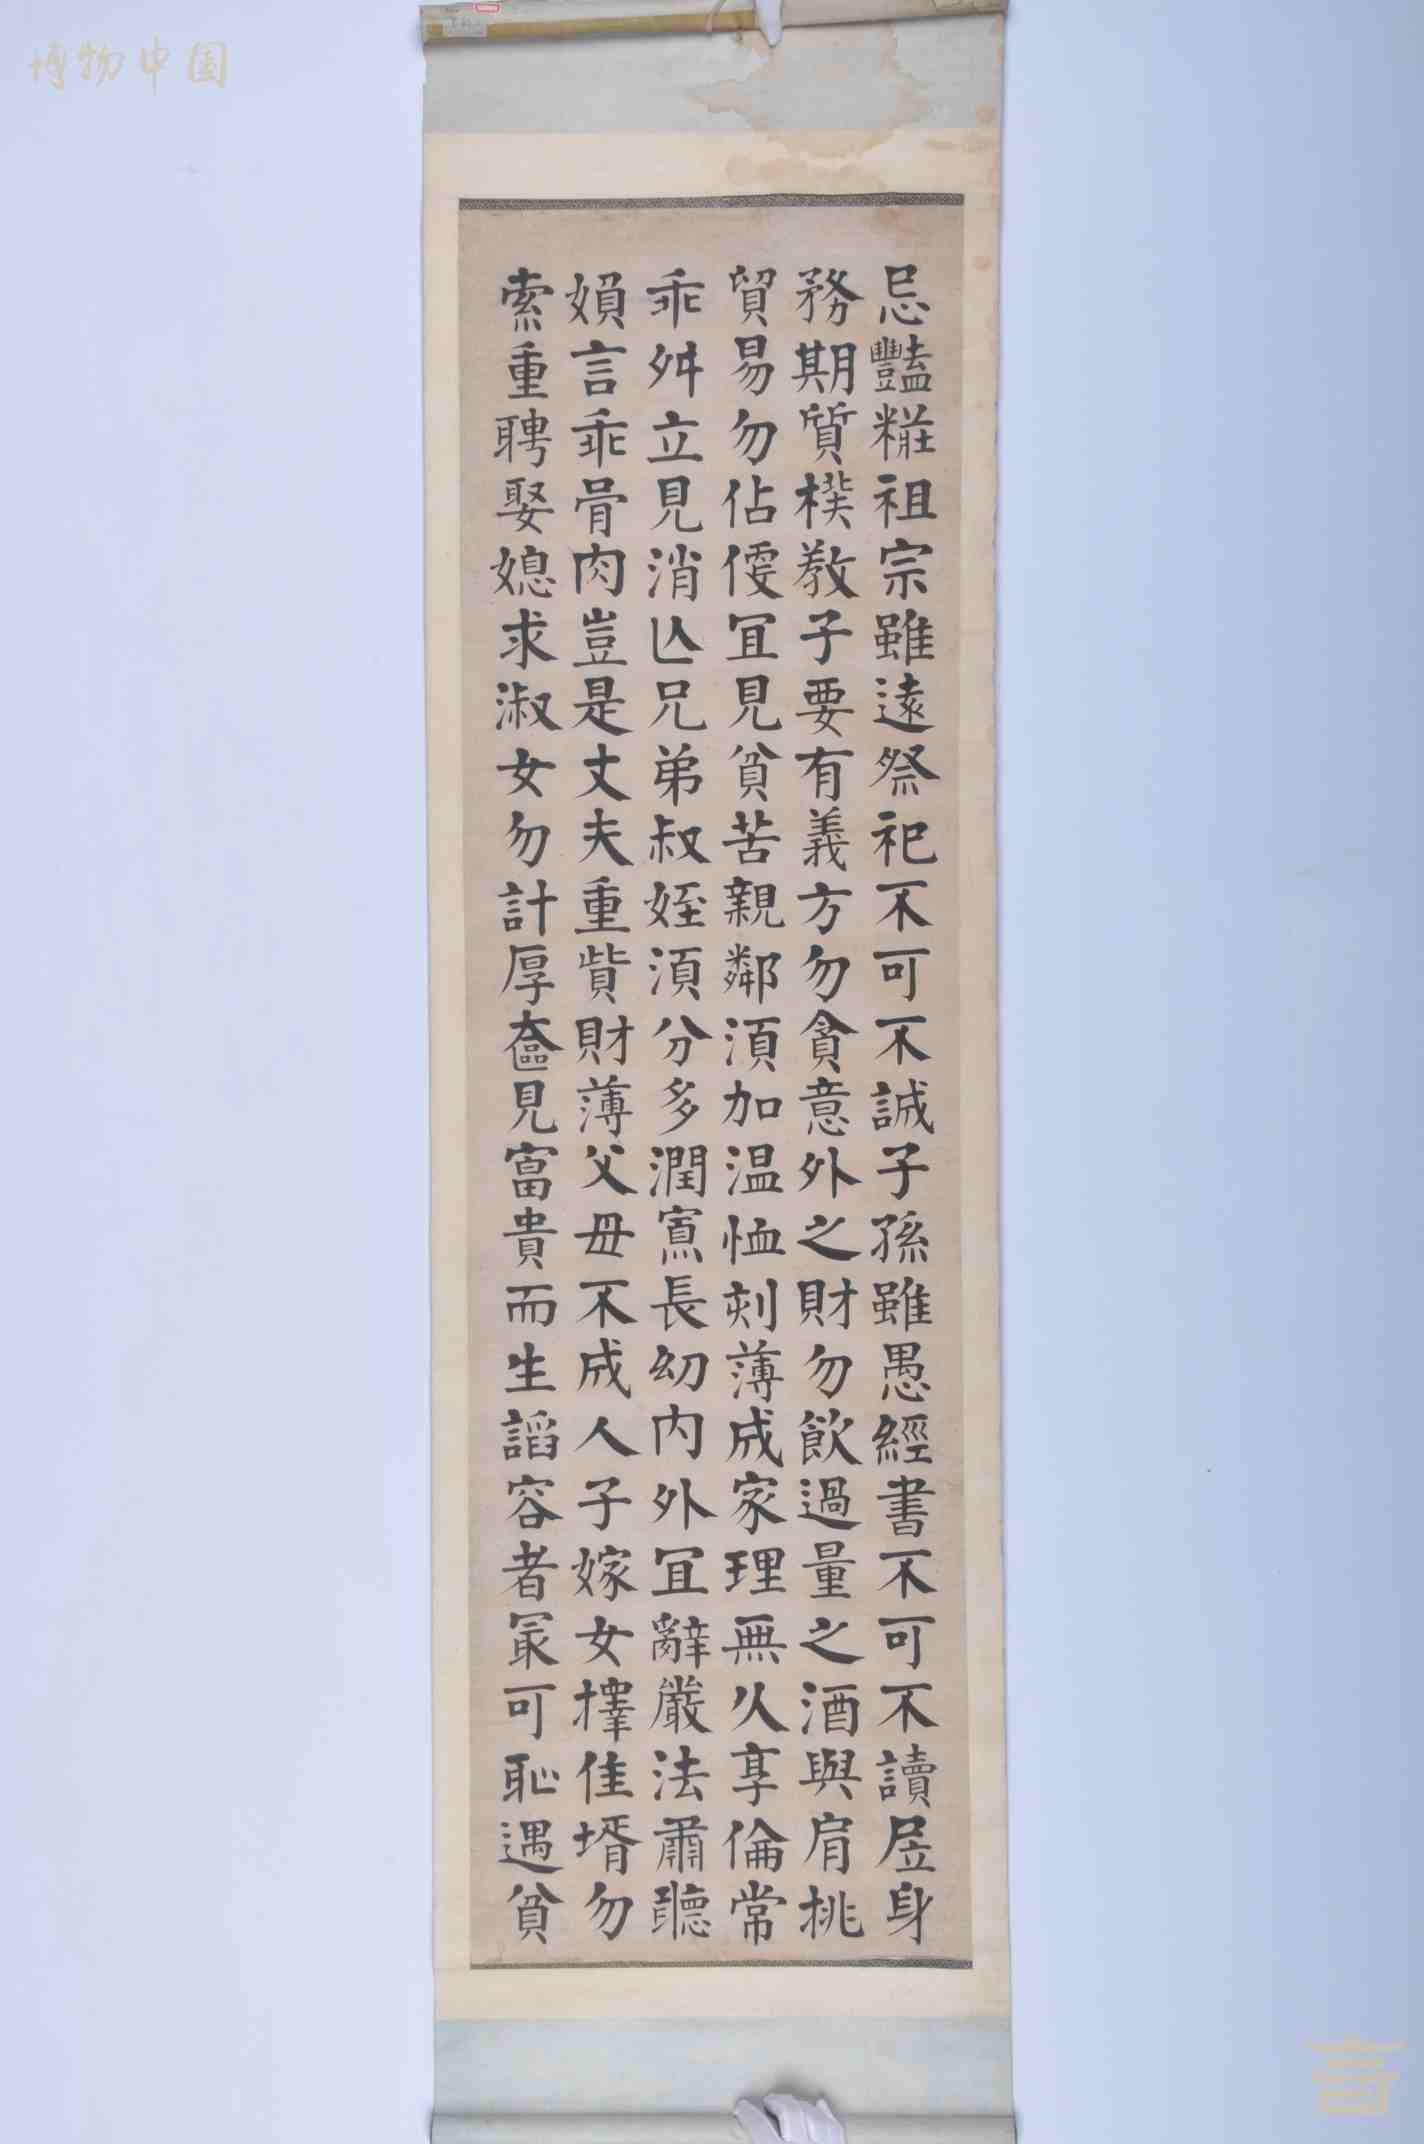 博物中国
忌豔糚祖宗雖遠祭祀不可不誠子孫雖愚經書不可不讀居身
務期質樸教子要有義方勿貪意外之財勿飲過量之酒與肩挑
貿易勿佔便宜見貧苦親鄰須加温恤刻薄成家理無久享倫常
乖舛立見消亾兄弟叔姪須分多潤寡長幼内外宜辭嚴法肅聽
婦言乖骨肉豈是丈夫重貲財薄父母不成人子嫁女擇佳壻勿
索重聘娶媳求淑女勿計厚奩見富貴而生謟容者冣可恥遇貧